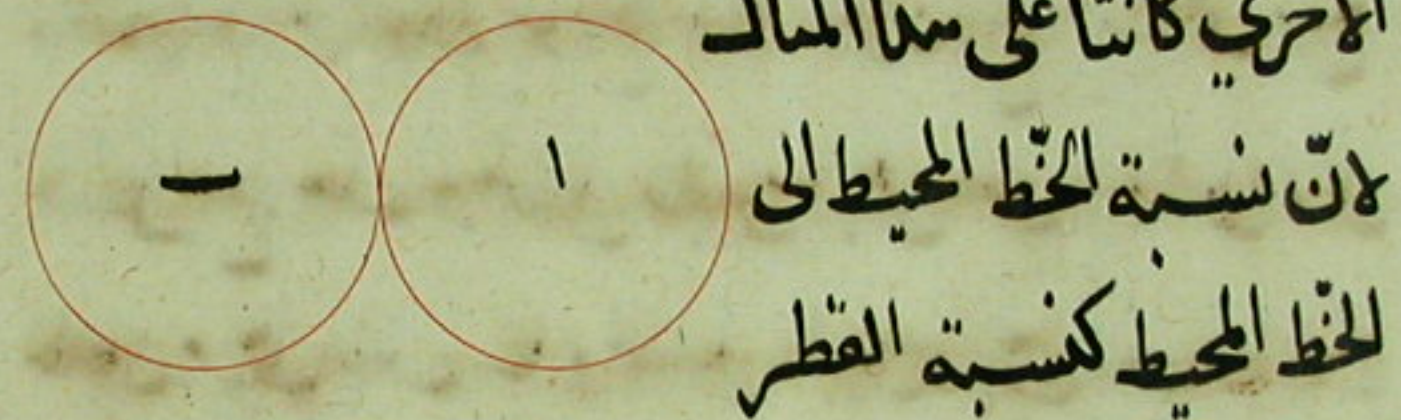 الاخرى كانتا على هذا المثال
لانّ نسبة الخّط المحيط الى
الخّط المحيط كنسبة القطر
ا
ب